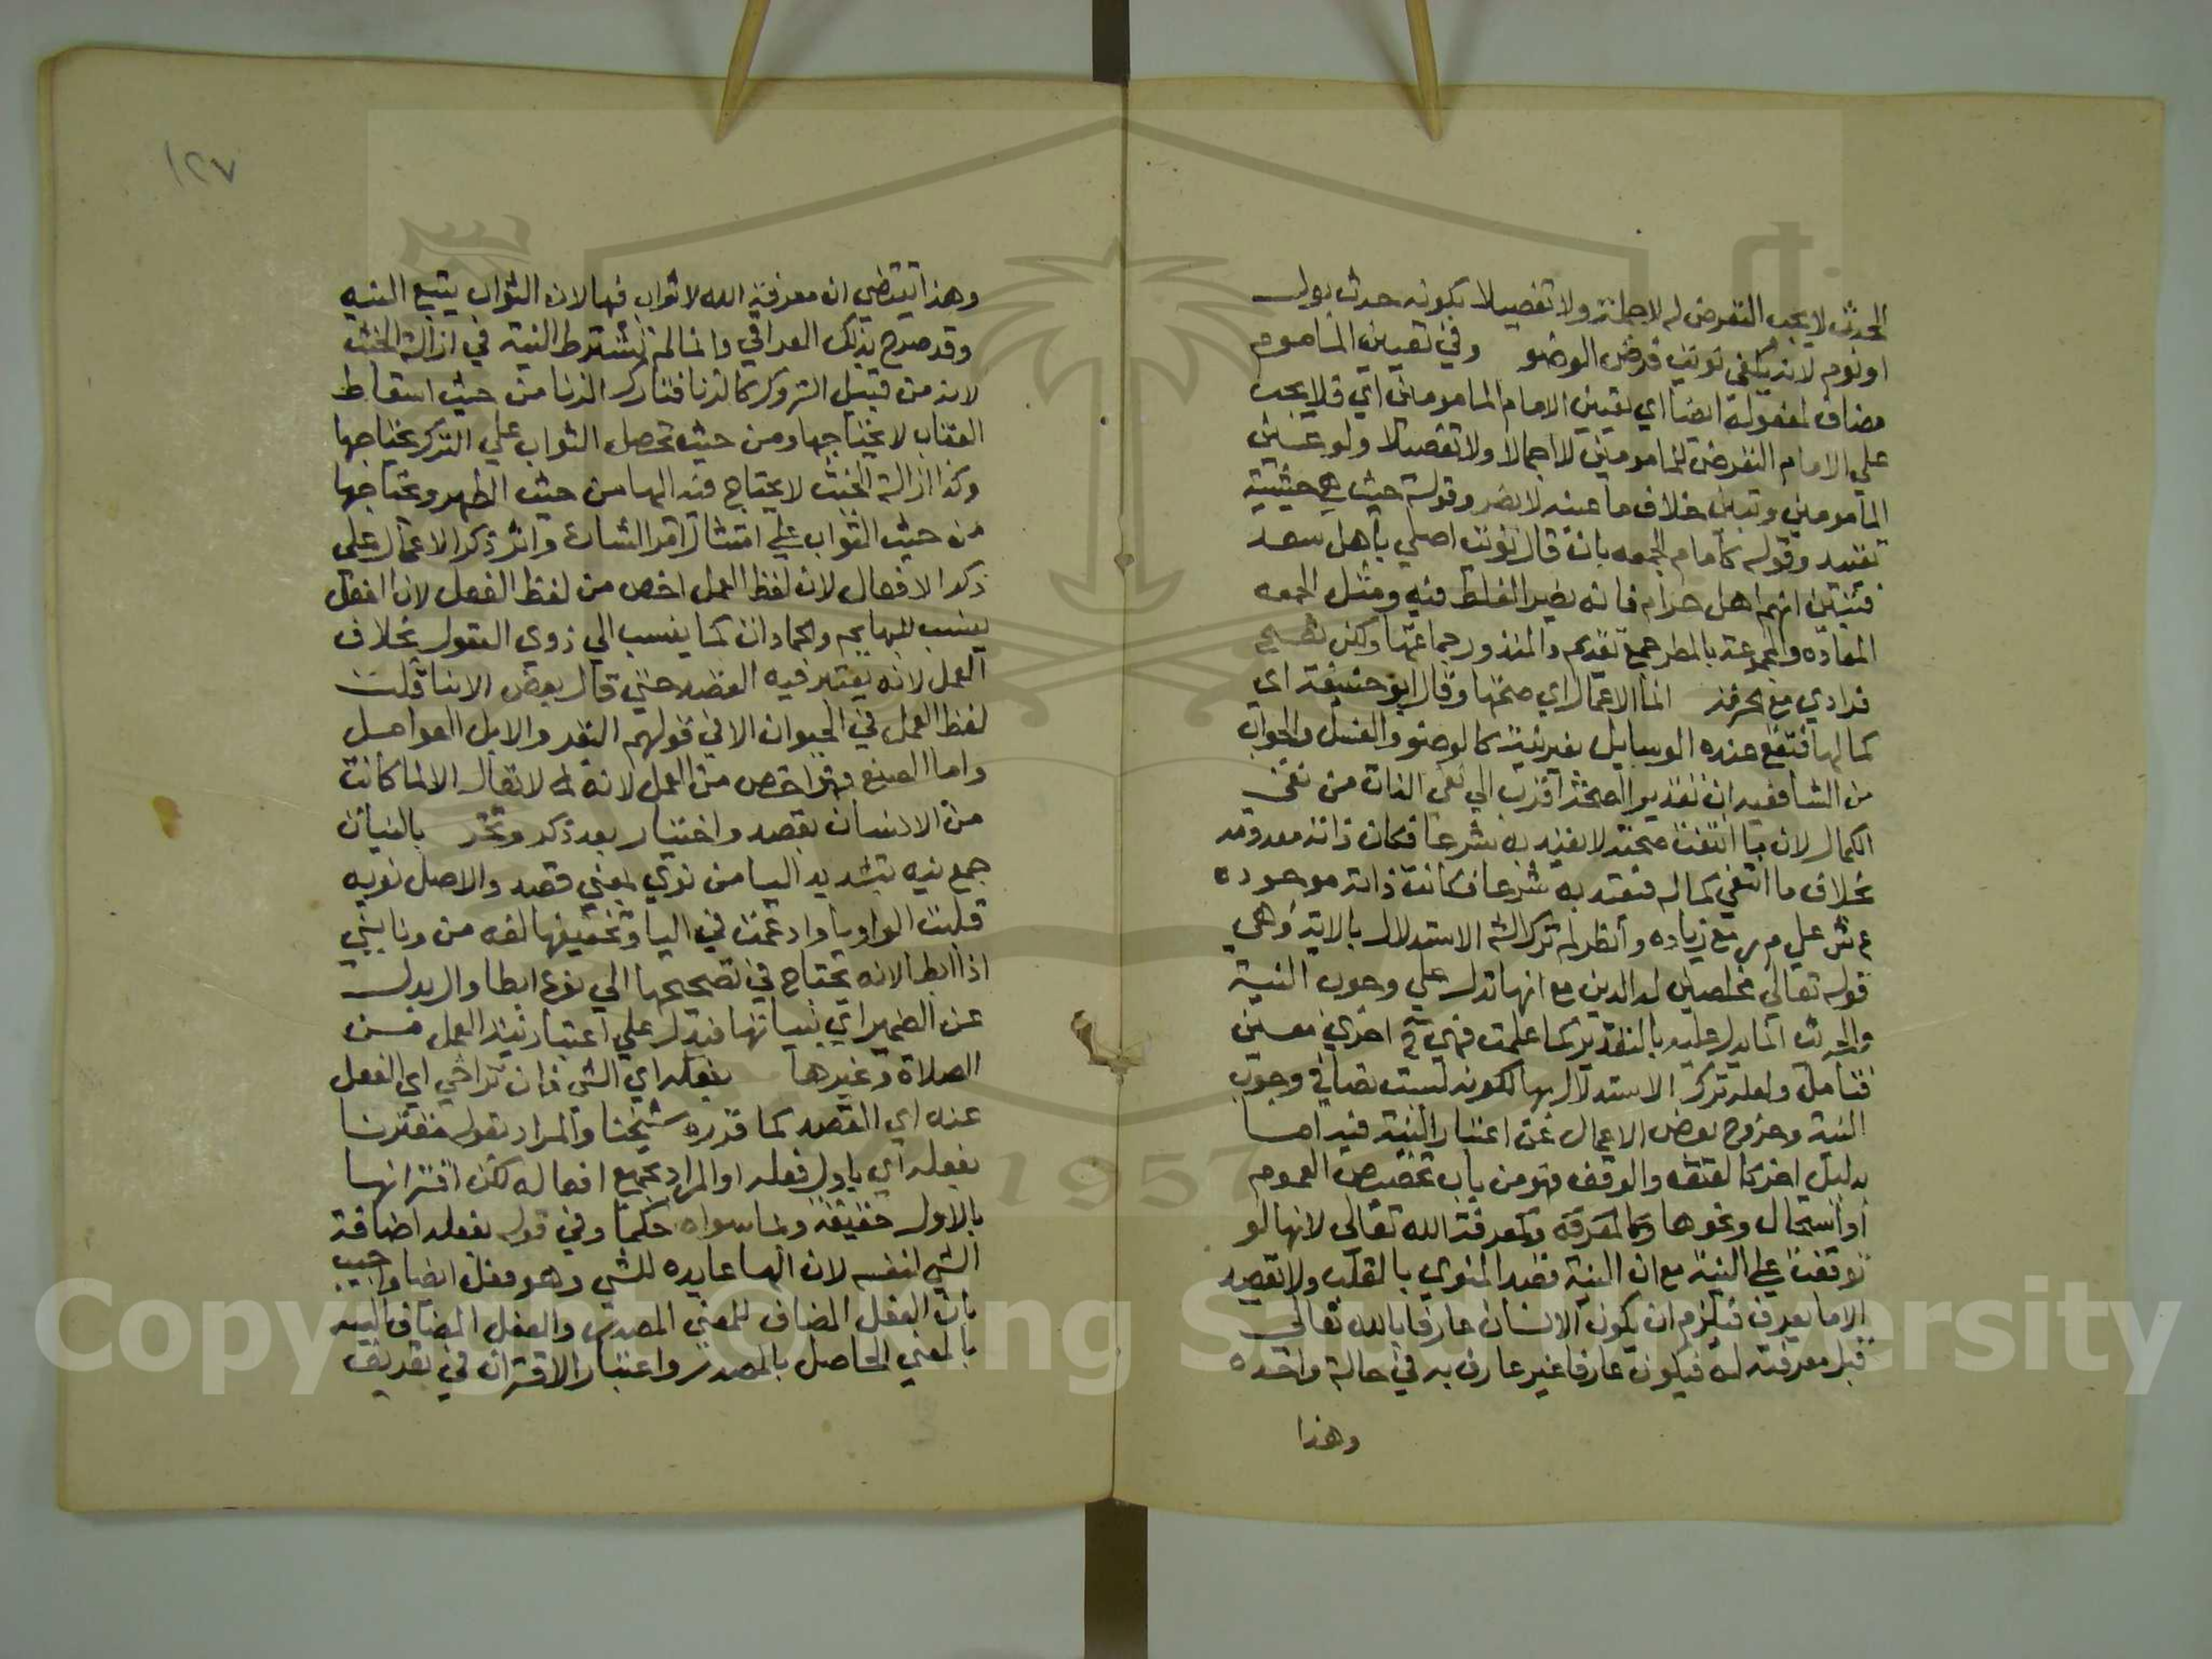 الحدث لا يجب التعرض له لا جملة ولا تفصيلا بكونه حدث بول
او نوم لانه يكفي نويت فرض الوضو وفي تعيين الماموم
مضاف لمفعوله ايضا اي تعيين الامام المامومين اي فلا يجب
علي الامام التعرض للمامومين لا اجمالا ولا تفصيلا ولو عين
المامومين وتبين خلاف ما عينه لا يضر وقوله حيث هي حيثية
تقييد وقوله كامام الجمعه بان قال نويت اصلي باهل سعد
فتبين انهم اهل حرام فانه يضر الغلط فيه ومثل الجمعه
المعاده والمجموعة بالمطر جمع تقديم والمنذور جماعتها ولكن تصح
فرادي مع الحرمة انما الاعمال اي صحتها وقال ابو حنيفة اي
كمالها فتقع عنده الوسايل بغير نية كالوضو والغسل والجواب
من الشافعيه ان تقدير الصحة اقرب الي نفي الذات من نفي
الكمال لان ما انتفت صحته لا يعتد به شرعا فكان ذاته معدومه
بخلاف ما انتفي كماله فيعتد به شرعا فكانت ذاته موجوده
ع ش علي م ر مع زياده وانظر لم ترك الش الاستدلال بالاية وهي
قوله تعالي مخلصين له الدين مع انها تدل علي وجوب النية
والحديث انما يدل عليه بالتقدير كما علمت فهي ح احري معين
فتامل ولعله ترك الاستدلال بها لكونه ليست نصا في وجوب
النية وخروج بعض الاعمال عن اعتبار النية فيه اما
بدليل اخر كالعتق والوقف فهو من باب تخصيص العموم
او استحال ونحوها كالمعرفه ومعرفة الله تعالي لانها لو
توقفت علي النية مع ان النية قصد المنوي بالقلب ولا تقصد
الا ما يعرف فيلزم ان يكون الانسان عارفا بالله تعالي
قبل معرفته له فيكون عارفا غير عارف به في حالة واحده
وهذا
١٢٧
وهذا يقتضي ان معرفة الله لا ثواب فيها لان الثواب يتبع النيه
وقد صرح بذلك العراقي وانما لم تشترط النية في ازالة الخبث
لانه من قبيل التروك كالزنا فتارك الزنا من حيث اسقاط
العقاب لا يحتاجها ومن حيث تحصل الثواب علي الترك يحتاجها
وكذا ازالة الخبث لا يحتاج فيه اليها من حيث الطهر ويحتاجها
من حيث الثواب علي امتثال امر الشارع واثر ذكر الاعمال علي
ذكر الافعال لان لفظ العمل اخص من لفظ الفعل لان الفعل
ينسب للبهايم والجمادات كما ينسب الي ذوي العقول بخلاف
العمل لانه يعتبر فيه القصد حتي قال بعض الادبا قلت
لفظ العمل في الحيوان الا في قولهم البقر والابل العوامل
واما الصنع فهو اخص من العمل لانه لا يقال الا لما كانت
من الانسان بقصد واختيار بعد ذكر وتحر بالنيات
جمع نيه بتشديد اليا من نوي بمعني قصد والاصل نويه
قلبت الواو يا وادغمت في اليا وتخفيفها لغه من ونا يني
اذا ابطا لانه يحتاج في تصحيحها الي نوع ابطا وال بدل
عن الضمير اي بنياتها فيدل علي اعتبار نية العمل من
الصلاة وغيرها بفعله اي الشي فان تراخي اي الفعل
عنه اي القصد كما قرره شيخنا والمراد بقوله مقترنا
بفعله اي باول فعله او المراد بجميع افعاله لكن اقترانها
بالاول حقيقة ولما سواه حكما وفي قوله بفعله اضافة
الشي لنفسه لان الها عايده للشي وهو فعل ايضا واجيب
بان الفعل المضاف للمعني المصدري والفعل المضاف اليه
بالمعني الحاصل بالمصدر واعتبار الاقتران في تعريف
Copyright © King Saud University
1957